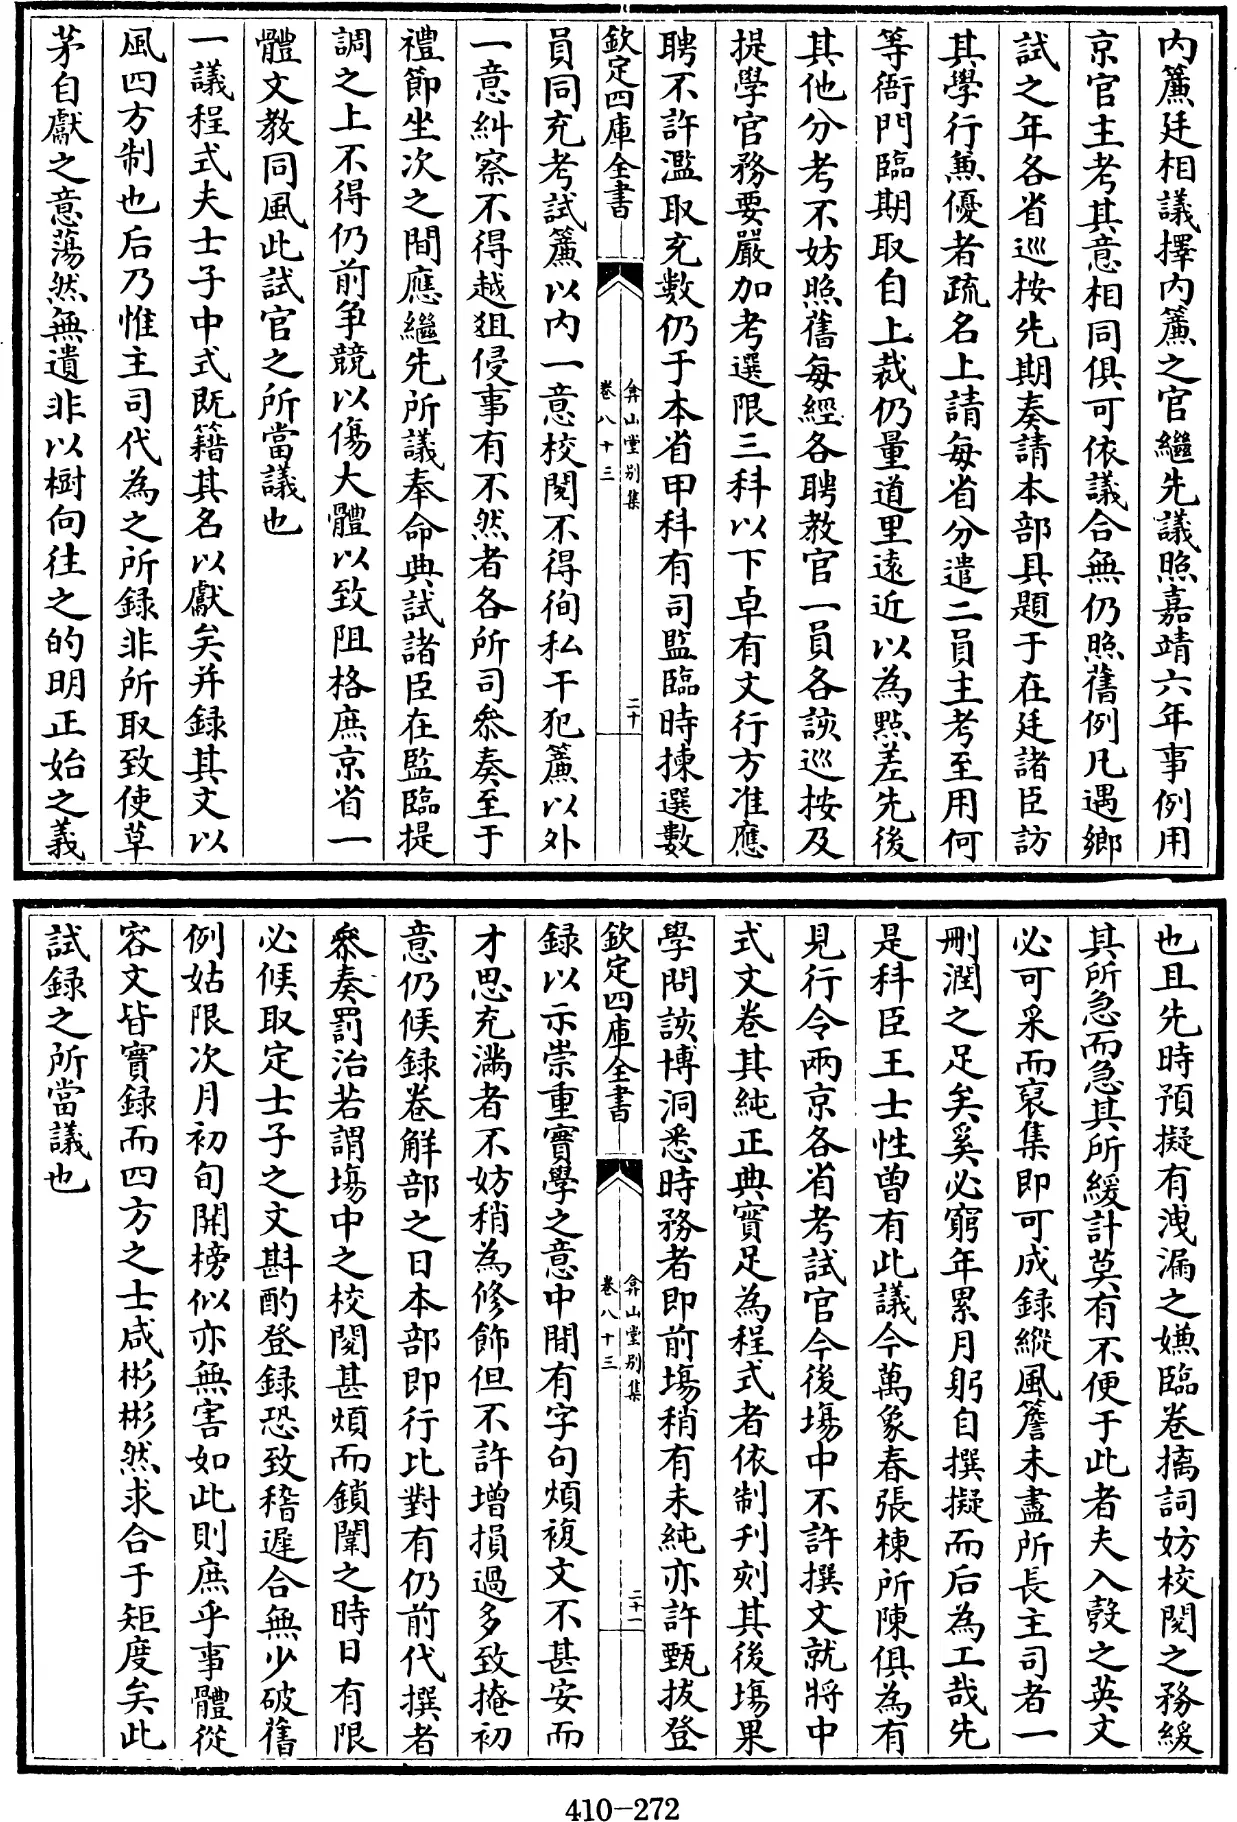 内簾廷相議擇内簾之官繼先議照嘉靖六年事例用
京官主考其意相同俱可依議合無仍照舊例凡遇鄉
試之年各省巡按先期奏請本部具題于在廷諸臣訪
其學行兼優者疏名上請每省分遣二員主考至用何
等衙門臨期取自上裁仍量道里遠近以為㸃差先後
其他分考不妨照舊每經各聘教官一員各該巡按及
提學官務要嚴加考選限三科以下卓有文行方准應
聘不許濫取充數仍于本省甲科有司監臨時揀選數
欽定四庫全書
弇山堂别集
卷八十三
二十
員同充考試簾以内一意校閱不得徇私干犯簾以外
一意糾察不得越狙侵事有不然者各所司叅奏至于
禮節坐次之間應繼先所議奉命典試諸臣在監臨提
調之上不得仍前争競以傷大體以致阻格庶京省一
體文教同風此試官之所當議也
一議程式夫士子中式既籍其名以獻矣并録其文以
風四方制也后乃惟主司代為之所録非所取致使草
茅自獻之意蕩然無遺非以樹向往之的明正始之義
也且先時預擬有洩漏之嫌臨卷摛詞妨校閱之務緩
其所急而急其所緩計莫有不便于此者夫入彀之英文
必可采而裒集即可成録縱風簷未盡所長主司者一
刪潤之足矣奚必窮年累月躬自撰擬而后為工哉先
是科臣王士性曾有此議今萬象春張棟所陳俱為有
見行令兩京各省考試官今後塲中不許撰文就將中
式文卷其純正典實足為程式者依制刋刻其後塲果
學問該博洞悉時務者即前塲稍有未純亦許甄拔登
欽定四庫全書
弇山堂别集
卷八十三
二十一
録以示崇重實學之意中間有字句煩複文不甚安而
才思充滿者不妨稍為修飾但不許增損過多致掩初
意仍候録卷解部之日本部即行比對有仍前代撰者
叅奏罰治若謂塲中之校閱甚煩而鎖闈之時日有限
必候取定士子之文斟酌登録恐致稽遲合無少破舊
例姑限次月初旬開榜似亦無害如此則庶乎事體從
容文皆實録而四方之士咸彬彬然求合于矩度矣此
試録之所當議也
410-272